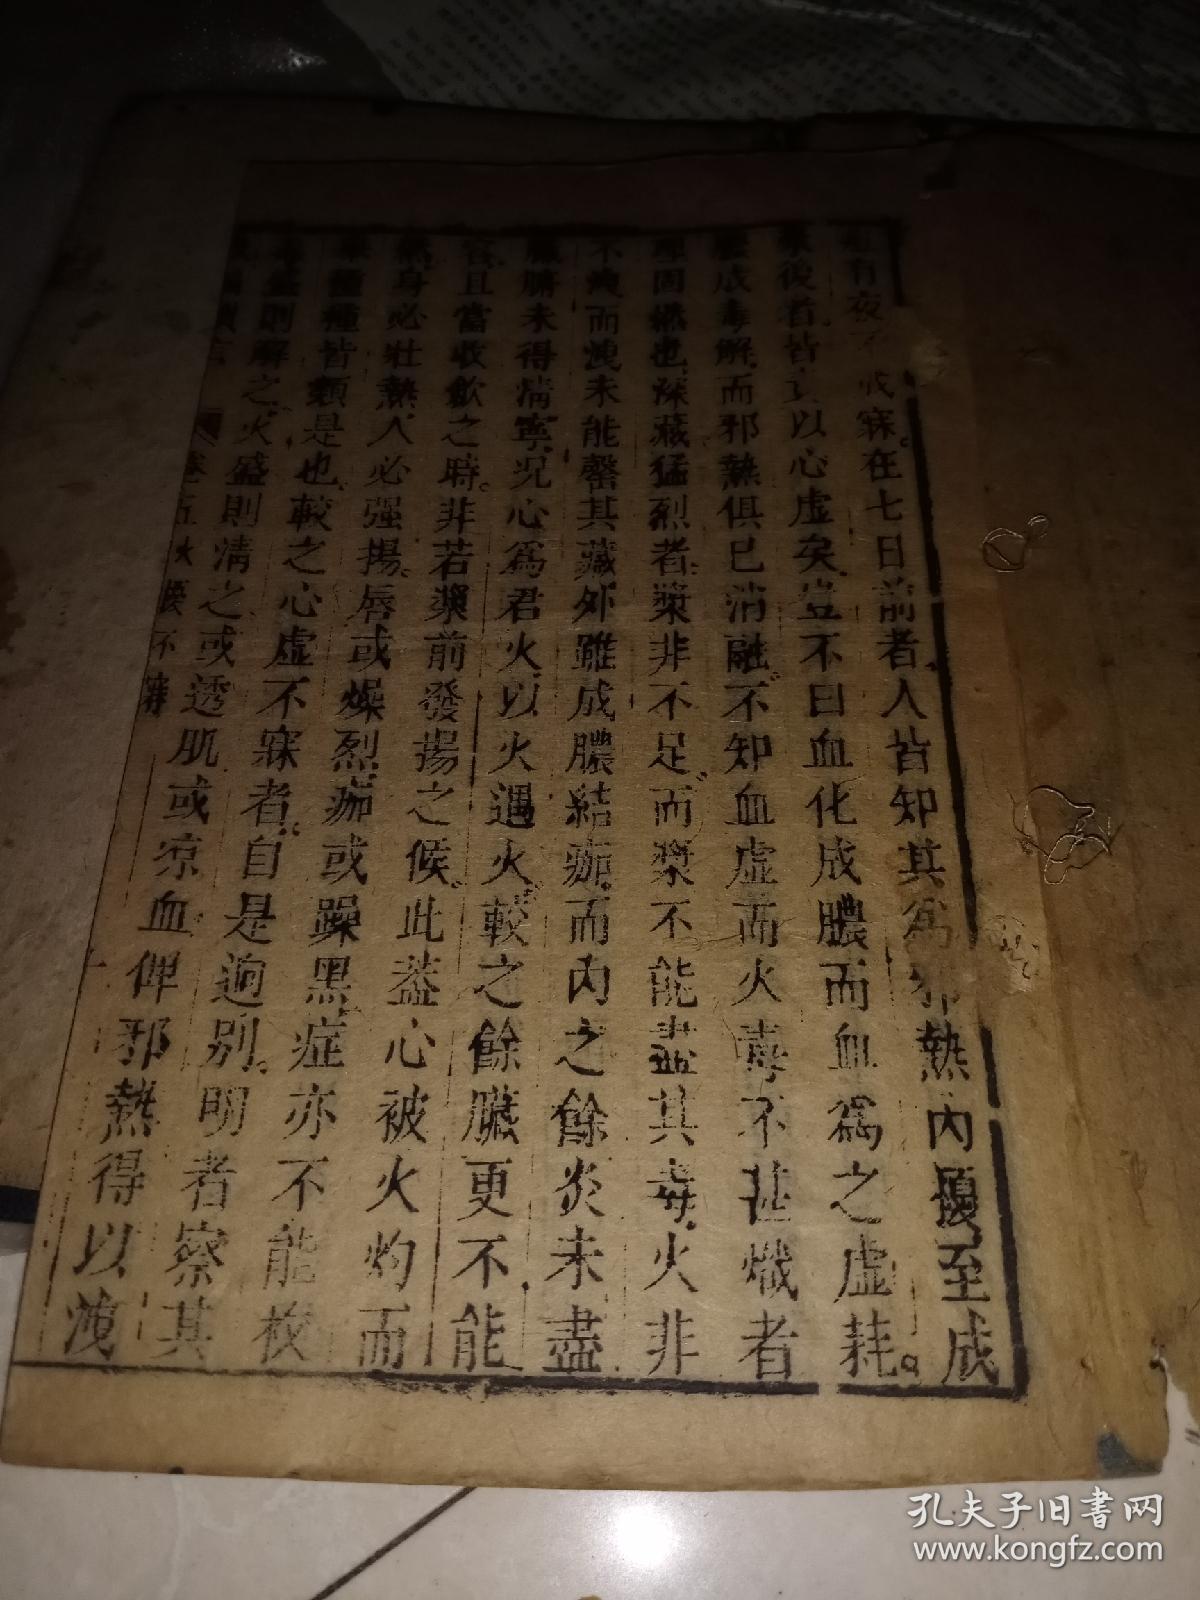 有夜不成寐。在七日前者人皆知其為邪熱內擾至成
漿後者皆責以心虛矣豈不曰血化成膿而血為之虛耗。
成毒解而邪熱俱已消融不知血虛而火毒不甚熾者
固然也深藏猛烈者漿非不足而漿不能盡其毒火非
不洩而洩未能罄其藏外雖成膿結痂而內之餘炎未盡
臟腑未得清寧況心為君火以火遇火較之餘臟更不能
容且當收斂之時非若漿前發揚之候此蓋心被火灼而
然身必壯熱人必強揚唇或燥烈痂或躁黑症亦不能枚
舉種種皆類是也較之心虛不寐者自是迥別明者察其
盛則解之火盛則清之或透肌或涼血俾邪熱得以洩
卷五火擾不寐
孔夫子旧书网
www.kongfz.com